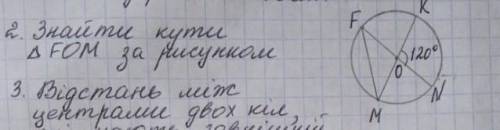 2. Знайти кути
△ FOM за рисунком
3. Відстань між
центрами двох кіл,
F
K
120°
O
N
M